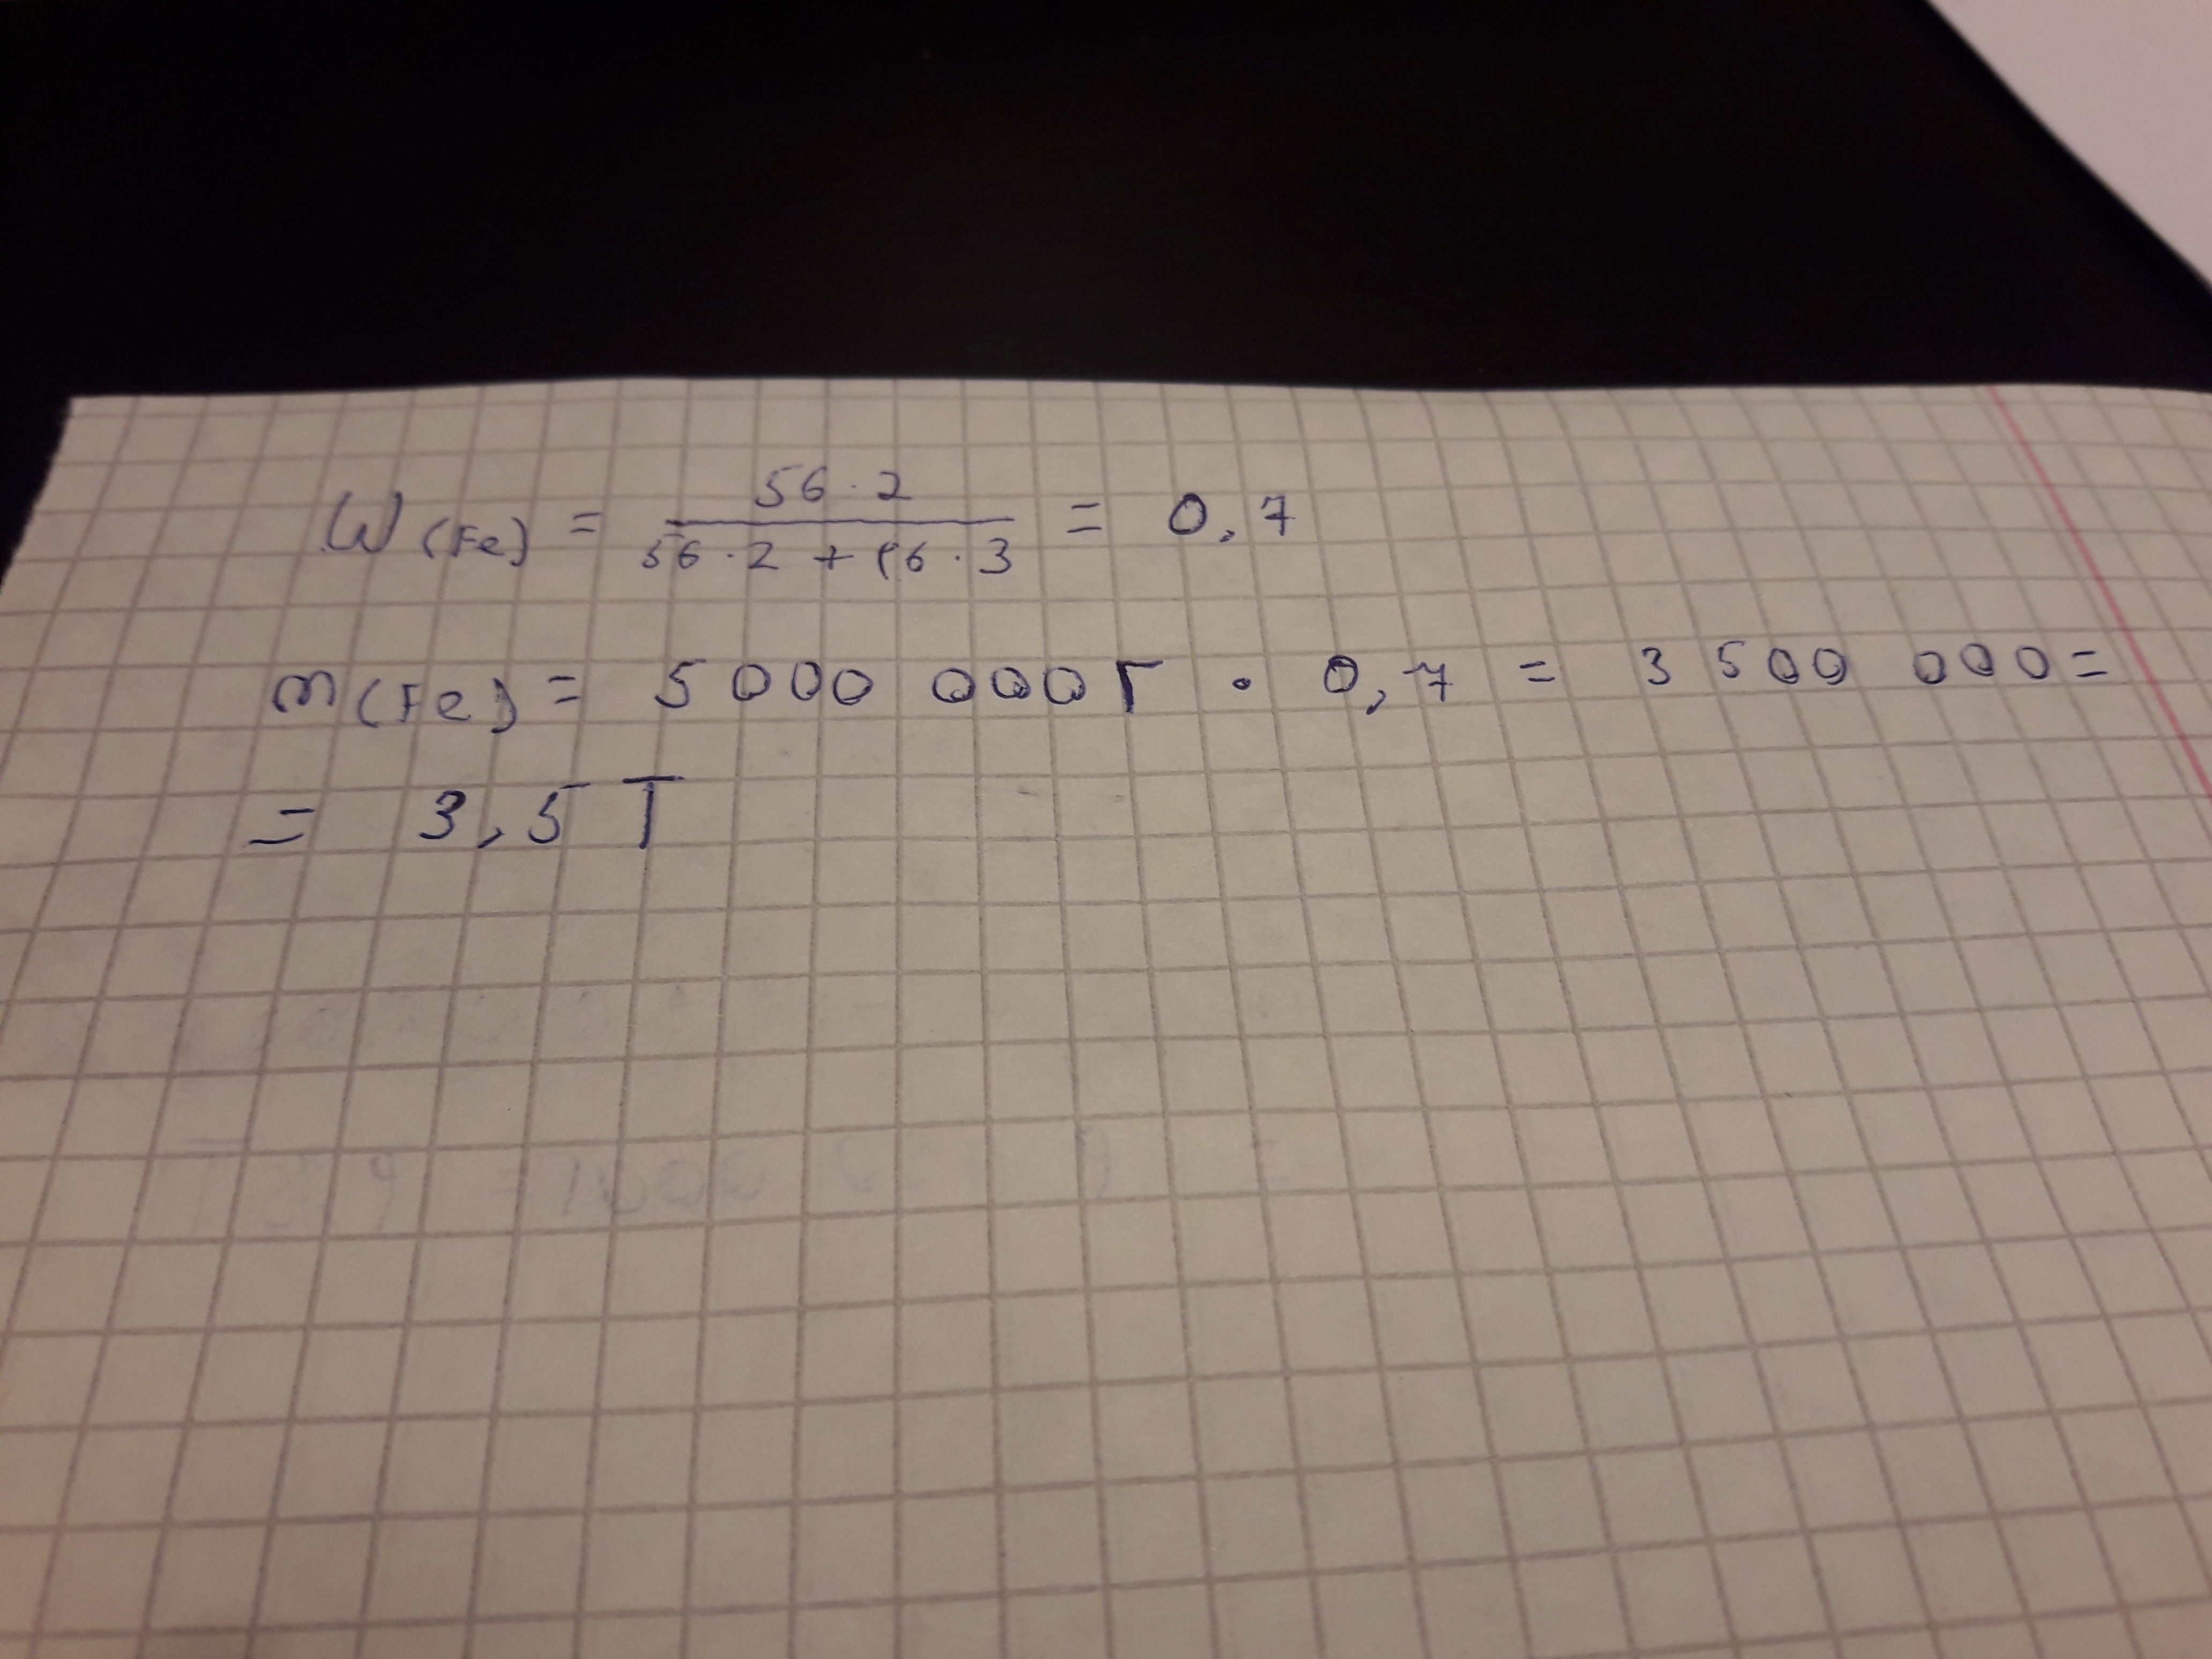 W(Fe) = 56·2 / 56·2 + 16·3 = 0,7
m(Fe) = 5000 000г · 0,7 = 3 500 000 =
= 3,5 Т